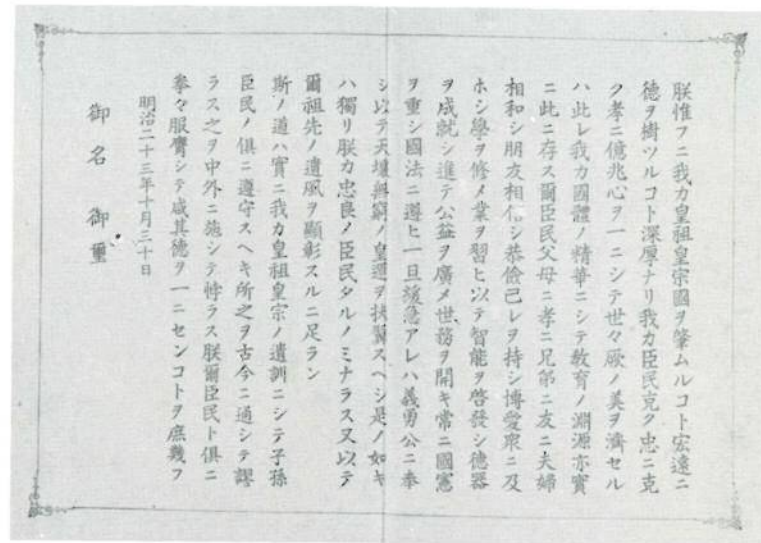 朕惟フニ我カ皇祖皇宗國ヲ肇ムルコト宏遠ニ
德ヲ樹ツルコト深厚ナリ我カ臣民克ク忠ニ克
ク孝ニ億兆心ヲ一ニシテ世々厥ノ美ヲ濟セル
ハ此レ我カ國體ノ精華ニシテ敎育ノ淵源亦實
ニ此ニ存ス爾臣民父母ニ孝ニ兄弟ニ友ニ夫婦
相和シ朋友相信シ恭儉己レヲ持シ博愛衆ニ及
ホシ學ヲ修メ業ヲ習ヒ以テ智能ヲ啓發シ德器
ヲ成就シ進テ公益ヲ廣メ世務ヲ開キ常ニ國憲
ヲ重シ國法ニ遵ヒ一旦緩急アレハ義勇公ニ奉
シ以テ天壤無窮ノ皇運ヲ扶翼スヘシ是ノ如キ
ハ獨リ朕カ忠良ノ臣民タルノミナラス又以テ
爾祖先ノ遺風ヲ顯彰スルニ足ラン
斯ノ道ハ實ニ我カ皇祖皇宗ノ遺訓ニシテ子孫
臣民ノ俱ニ遵守スヘキ所之ヲ古今ニ通シテ謬
ラス之ヲ中外ニ施シテ悖ラス朕爾臣民ト俱ニ
拳々服膺シテ咸其德ヲ一ニセンコトヲ庶幾フ
明治二十三年十月三十日
御名 御璽